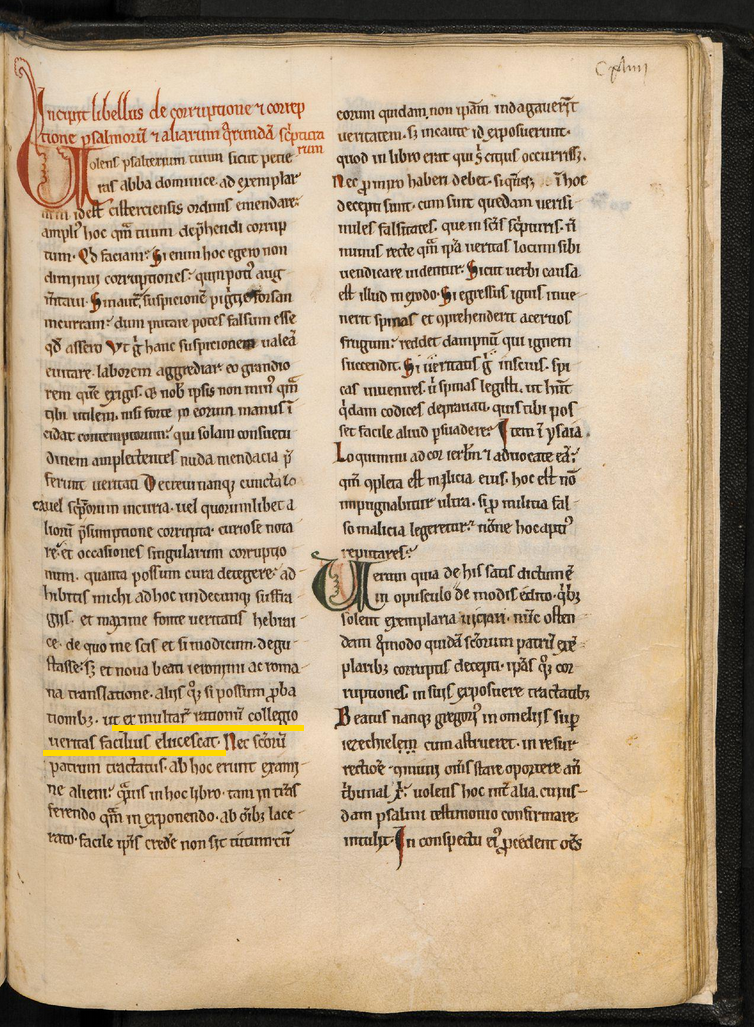 Cxliiii
Incipit libellus de corruptione ⁊ correp
tione psalmorū ⁊ aliarum q̄rundā scͥptura
rum
Uolens psalterium tuum sicut petie
ras abba dominice. ad exemplar
cisterciensis ordinis emendare:
ampliꝰ hoc q̄m tuum dep̄hendi corrup
tum. Qd faciam: Si enim hoc egero non
diminui corruptiones: quin potiꝰ aug
m̄taui. Si suspicionē forsan
incurram: dum putare potes falsum esse
qd assero Vt ḡ hanc suspicionem ualeā
euitare. laborem aggrediar. eo grandio
rem quē exigis. qͦ nob ipsis non minꝰ q̄m
tibi utilem. nisi forte in eorum manus ī
cidat contemptorum: qui solam consuetu
dinem amplectentes nuda mendacia p̄
ferunt ueritati Decreui nanq; cuncta lo
ca uel scͥptorum incuria. uel quorumlibet a
liorū p̄sumptione corrupta. curiose nota
re: et occasiones singularum corruptio
num. quanta possum cura detegere: ad
hibitis michi ad hoc undecunq; suffra
giis. et maxime fonte ueritatis hebrai
ce. de quo me scis et si modicum. degu
stasse: s; et noua beati ieronimi ac roma
na translatione. aliis q; si possum p̱ba
tionib;. ut ex multaꝝ rationū collegio
ueritas facilius elucescat. Nec scōrū
patrum tractatus. ab hoc erunt exami
ne alieni: in hoc libro. tam in trās
ferendo q̄m in exponendo. ab ōib; lace
rato. facile ip̄is credē non sit tutum. cū
eorum quidam non ipsam indagauerīt
ueritatem. s; incaute id exposuerunt.
quod in libro erat qui s; citius occurriss;.
Nec p̱ miro haberi debet. si ī hoc
decepti sunt. cum sint quedam uerisi
miles falsitates. que in scīs scͥpturis. ñ
minus recte q̄m ipa ueritas locum sibi
uendicare uidentur. Sicut uerbi causa.
est illud in exodo. Si egressus ignis inue
nerit spinas et cp̄rehenderit aceruos
frugum: reddet dampnū qui ignem
succendit. Si ueritatis ḡ inscius. spi
cas inuenires. ñ spinas legisti. ut hn̄t
q̄dam codices deprauati. quis tibi pos
set facile aliud p̱suadere: Item ī ysaia.
Loquimini ad cor ierlm̄ ⁊ aduocate eā:
qm̄ cp̱leta est malicia eius. hoc est nō
impugnabitur ultra. si p̱ militia fal
so malicia legeretur: nōne hoc aptiꝰ
reputares:
Uerum quia de his satis dictum ē
in opusculo de modis edito. qͥb;
solent exemplaria uiciari. nūc osten
dam qͦmodo quidā scōrum patrū exē
plarib; corruptis decepti. ip̄as q; cor
ruptiones in suis exposuere tractatib;
Beatus nanq; gregoriꝰ in omeliis sup̱
iezechielem cum astrueret. in resur
rectiōe omīs stare oportere añ
tͥbunal x̄: uolens hoc int̄ alia. cuius
dam psalmi testimonio confirmare.
intulit. In conspectu eiꝰ p̱cedent oēs